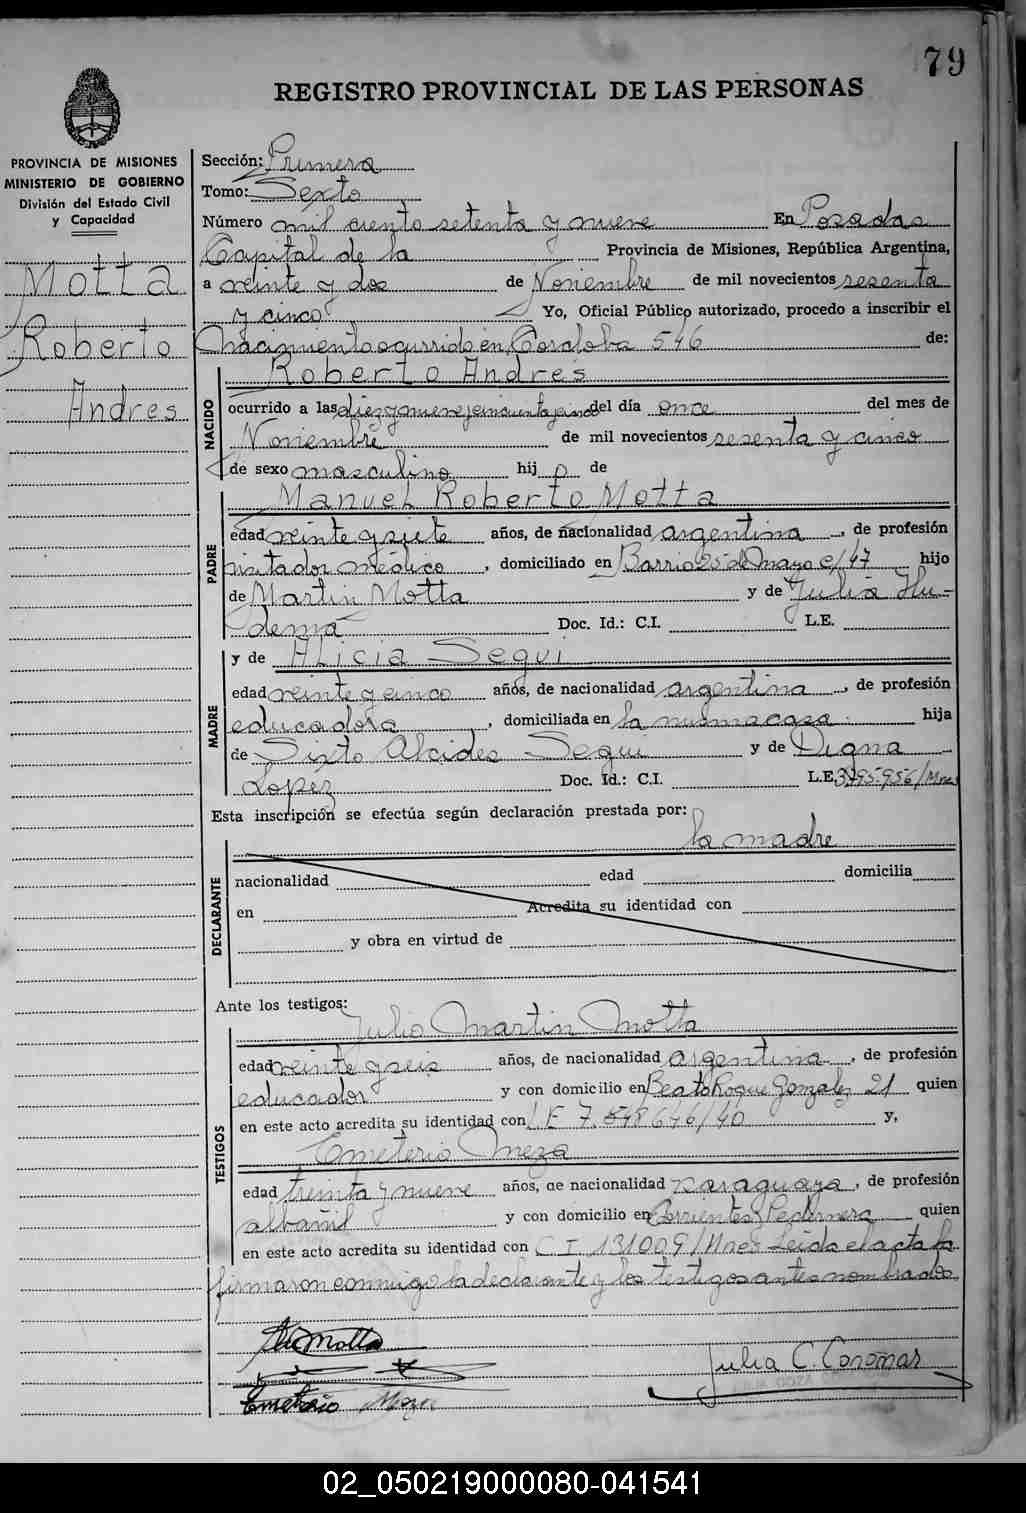 79
REGISTRO PROVINCIAL DE LAS PERSONAS
PROVINCIA DE MISIONES
MINISTERIO DE GOBIERNO
División del Estado Civil
y Capacidad
Motta
Roberto
Andres
Sección: Primera
Tomo: Sexto
Número mil ciento setenta y nueve En Posadas
Capital de la Provincia de Misiones, República Argentina,
a veinte y dos de Noviembre de mil novecientos sesenta
y cinco Yo, Oficial Público autorizado, procedo a inscribir el
Nacimiento ocurrido en Cordoba 546 de:
NACIDO
Roberto Andres
ocurrido a las diez y nueve y cincuenta y cinco del día once del mes de
Noviembre de mil novecientos sesenta y cinco
de sexo masculino hij o de
PADRE
Manuel Roberto Motta
edad veinte y siete años, de nacionalidad argentina, de profesión
visitador médico, domiciliado en Barrio 25 de Mayo c/47 hijo
de Martin Motta y de Julia Hu-
dema Doc. Id.: C.I. L.E.
MADRE
y de Alicia Segui
edad veinte y cinco años, de nacionalidad argentina, de profesión
educadora, domiciliada en la misma casa hija
de Sixto Alcides Segui y de Digna
Lopez Doc. Id.: C.I. L.E. 3.795.956/Mnes
Esta inscripción se efectúa según declaración prestada por:
la madre
DECLARANTE
nacionalidad edad domicilia
en Acredita su identidad con
y obra en virtud de
Ante los testigos:
TESTIGOS
Julio Martin Motta
edad veinte y seis años, de nacionalidad argentina, de profesión
educador y con domicilio en Beato Roque Gonzalez 21 quien
en este acto acredita su identidad con L.E 7.548646/40 y,
Emeterio Meza
edad treinta y nueve años, de nacionalidad paraguaya, de profesión
albañil y con domicilio en Corrientes y Pedernera quien
en este acto acredita su identidad con C I 131009/Mnes Leida el acta la
firmaron conmigo la declarante y los testigos antes nombrados
Motta
Emeterio Meza
Julia C. Coromar
02_050219000080-041541